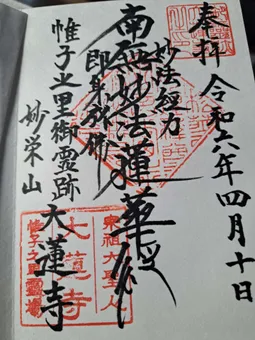 奉拝 令和六年四月十日
妙法経力
即身成佛
南無妙法蓮華経
帷子之里御霊跡
妙栄山 大蓮寺
宗祖大聖人
大蓮寺
帷子之里霊場